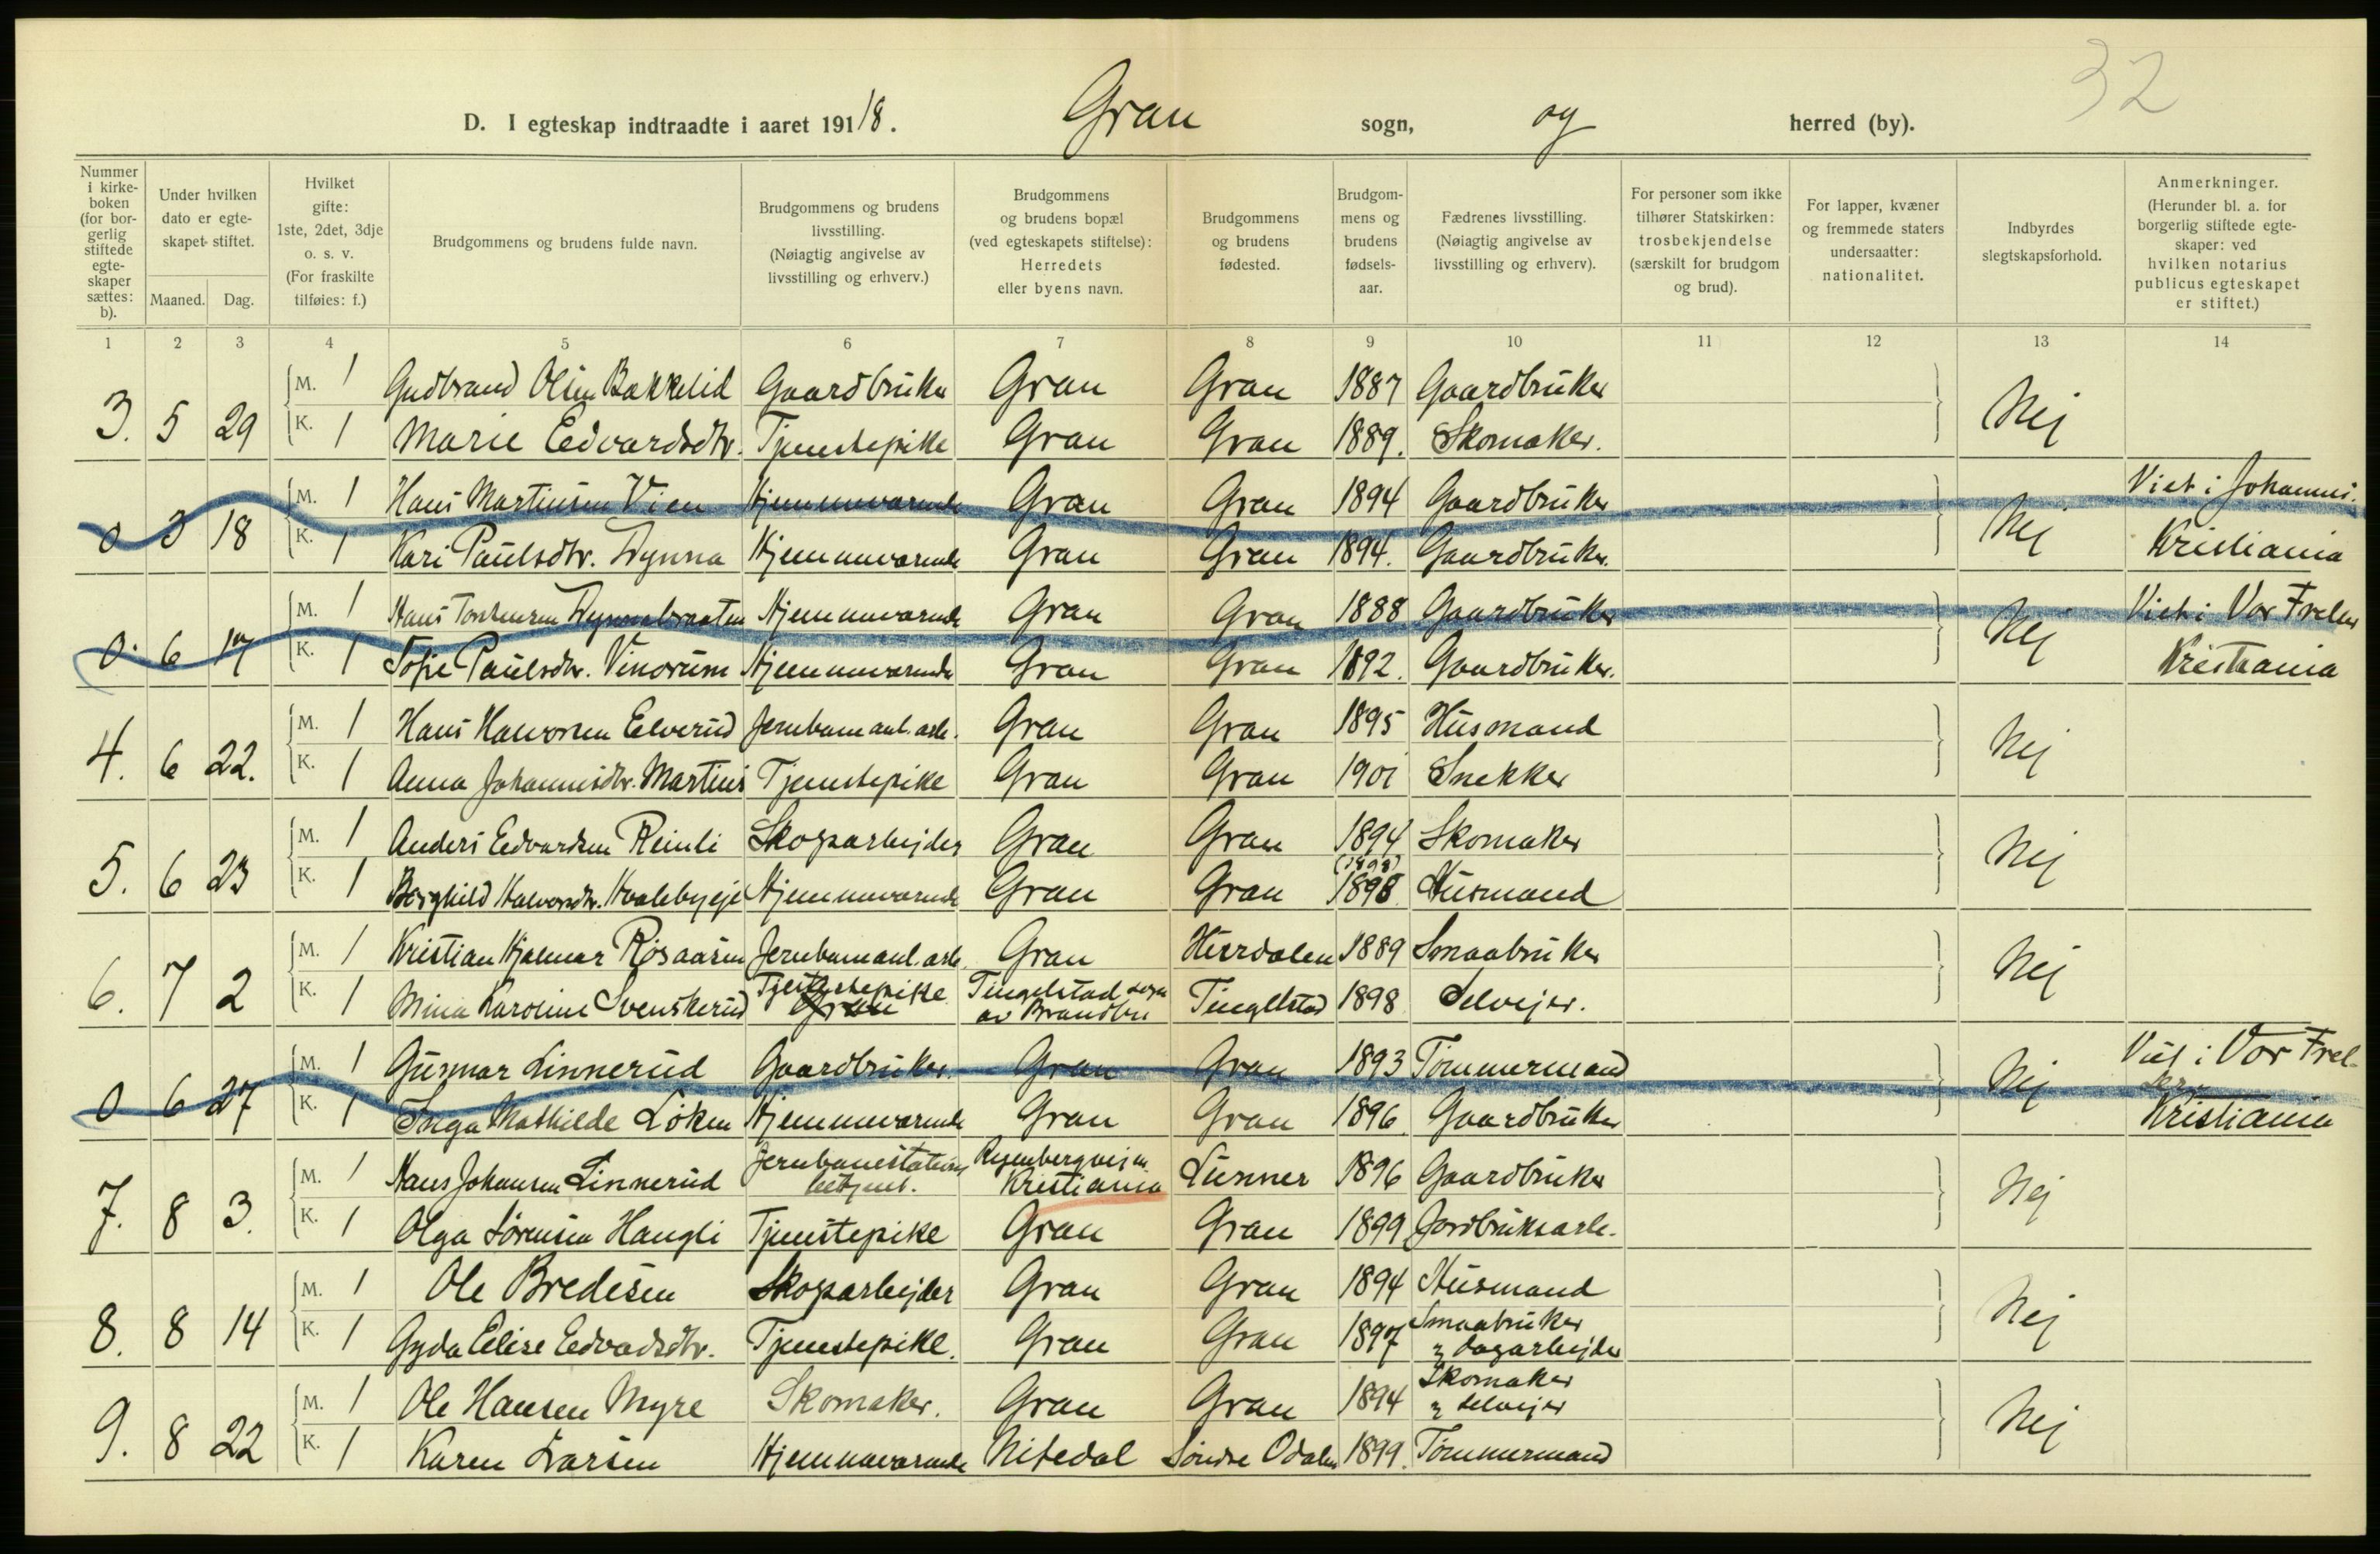 32
D. I egteskap indtraadte i aaret 1918. Gran sogn, og herred (by).
Nummer i kirke-boken (for bor-gerlig stiftede egte-skaper sættes: b).
Under hvilken dato er egte-skapet stiftet.
Maaned. Dag.
Hvilket gifte: 1ste, 2det, 3dje o. s. v. (For fraskilte tilføies: f.)
Brudgommens og brudens fulde navn.
Brudgommens og brudens livsstilling. (Nøiagtig angivelse av livsstilling og erhverv.)
Brudgommens og brudens bopæl (ved egteskapets stiftelse): Herredets eller byens navn.
Brudgommens og brudens fødested.
Brudgom-mens og brudens fødsels-aar.
Fædrenes livsstilling. (Nøiagtig angivelse av livsstilling og erhverv).
For personer som ikke tilhører Statskirken: trosbekjendelse (særskilt for brudgom og brud).
For lapper, kvæner og fremmede staters undersaatter: nationalitet.
Indbyrdes slegtskapsforhold.
Anmerkninger. (Herunder bl. a. for borgerlig stiftede egte-skaper: ved hvilken notarius publicus egteskapet er stiftet.)
1 2 3 4 5 6 7 8 9 10 11 12 13 14
M. 1 Gudbrand Olsen Bakkelid Gaardbruker Gran Gran 1887 Gaardbruker
3. 5 29 K. 1 Marie Edvardsdtr. Tjenestepike Gran Gran 1889. Skomaker. Nej
M. 1 Hans Martinsen Vien Hjemmeværende Gran Gran 1894 Gaardbruker Viet i Johannes.
0 3 18 K. 1 Kari Paulsdtr. Dynna Hjemmeværende Gran Gran 1894. Gaardbruker. Nej Kristiania
M. 1 Hans Dynnabraaten Hjemmeværende Gran Gran 1888 Gaardbruker Viet i Vor Frelser
0. 6 17 K. 1 Sofie Paulsdtr. Vinorum Hjemmeværende Gran Gran 1892. Gaardbruker. Nej Kristiania
M. 1 Hans Halvorsen Elverud Jernbaneanl. arb. Gran Gran 1895 Husmand
4. 6 22. K. 1 Anna Johannisdtr. Martins Tjenestepike Gran Gran 1901 Snekker Nej
M. 1 Anders Edvardsen Reinli Skogarbejder Gran Gran 1894 Skomaker
(1898)
5. 6 23 K. 1 Borghild Halvorsdtr. Hvalebyeje Hjemmeværende Gran Gran 1898 Husmand Nej
M. 1 Kristian Hjalmar Rosaasen Jernbaneanl. arb. Gran Hurdalen 1889 Smaabruker
6. 7 2 K. 1 Mina Karoline Svenskerud Tjenestepike Gran Tingelstad sogn av Brandbu Tingelstad 1898 Selvejer. Nej
M. 1 Gunnar Linnerud Gaardbruker. Gran Gran 1893 Tømmermand Viet i Vor Frel-
0 6 27 K. 1 Inga Mathilde Løken Hjemmeværende Gran Gran 1896 Gaardbruker Nej sers Kristiania
M. 1 Hans Johansen Linnerud Jernbanestations betjent. Kristiania Lunner 1896 Gaardbruker
7. 8 3. K. 1 Olga Sørensen Haugli Tjenestepike Gran Gran 1899 Jordbruksarb. Nej
M. 1 Ole Bredesen Skogarbejder Gran Gran 1894 Husmand
8. 8 14 K. 1 Gyda Elise Edvadsdtr. Tjenestepike. Gran Gran 1897 Smaabruker & dagarbejder Nej
M. 1 Ole Hansen Myre Skomaker. Gran Gran 1894 Skomaker & selvejer
9. 8 22 K. 1 Karen Larsen Hjemmeværende Nitedal Søndre Odalen 1899. Tømmermand Nej